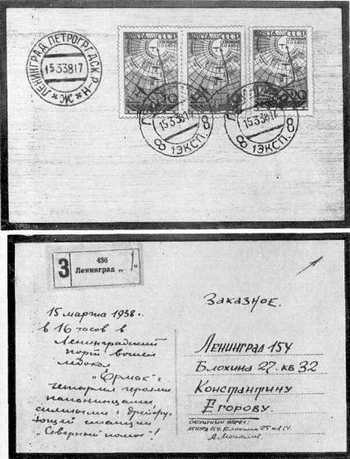 ЛЕНИНГРАД ПЕТРОГРАДСК. Р-Н Ж
15.3.38.17
ПОЧТА СССР
20
15.3.38.17
8 1 ЭКСП. 8
15.3.38.17
8 1 ЭКСП. 8
З
436
Ленинград „ 1 "
15 марта 1938 г.
в 16 часов в
Ленинградский
порт вошел
ледокол
„Ермак" с
четырьмя героями
папанинцами
снятыми с дрейфу-
ющей станции
„Северный полюс"!
Заказное.
Ленинград 154
Блохина 27. кв 32
Константину
Егорову.